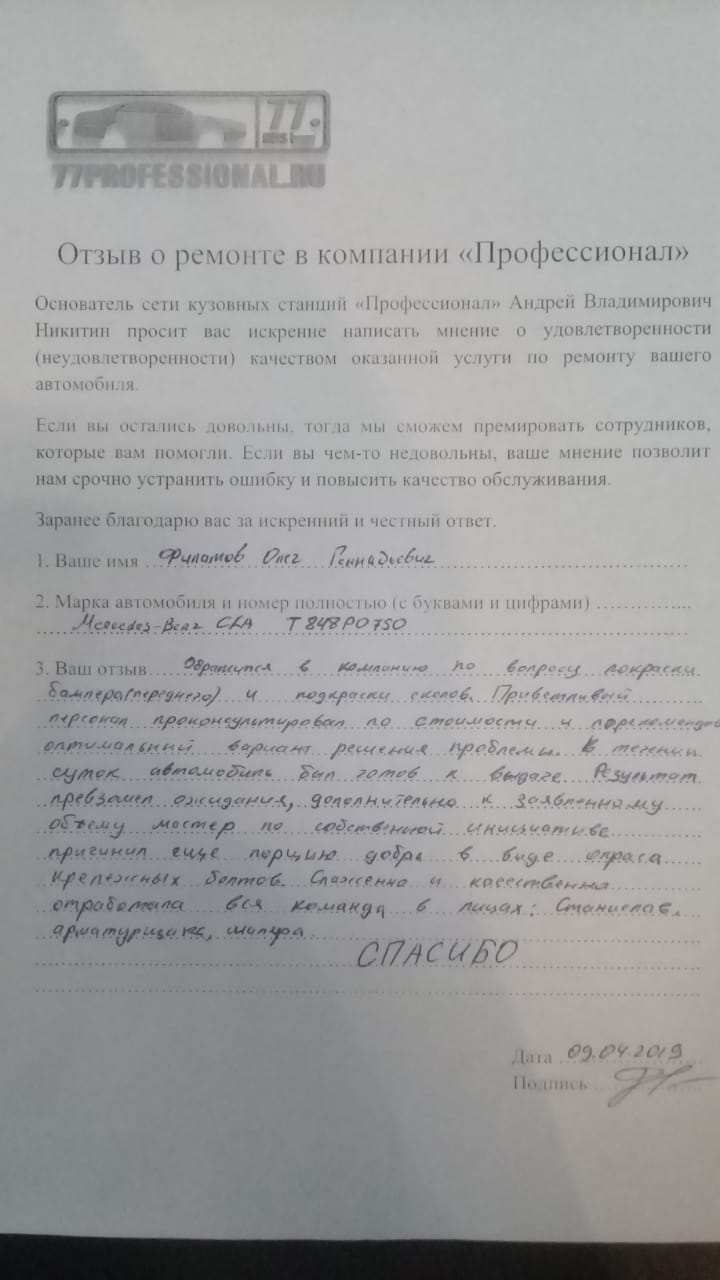 77
77PROFESSIONAL.RU
Отзыв о ремонте в компании «Профессионал»
Основатель сети кузовных станций «Профессионал» Андрей Владимирович
Никитин просит вас искренне написать мнение о удовлетворенности
(неудовлетворенности) качеством оказанной услуги по ремонту вашего
автомобиля.
Если вы остались довольны, тогда мы сможем премировать сотрудников,
которые вам помогли. Если вы чем-то недовольны, ваше мнение позволит
нам срочно устранить ошибку и повысить качество обслуживания.
Заранее благодарю вас за искренний и честный ответ.
1. Ваше имя Филатов Олег Геннадьевич
2. Марка автомобиля и номер полностью (с буквами и цифрами)
Mercedes-Benz CLA Т848РО750
3. Ваш отзыв Обратился в компанию по вопросу покраски
бампера(переднего) и подкраски сколов. Приветливый
персонал проконсультировал по стоимости и порекомендов
оптимальный вариант решения проблемы. В течении
суток автомобиль был готов к выдаче. Результат
превзошел ожидания, дополнительно к заявленному
объему мастер по собственной инициативе
причинил еще порцию добра в виде окраса
крепежных болтов. Слаженно и качественно
отработала вся команда в лицах: Станислав,
арматурщика, маляра.
СПАСИБО
Дата 09.04.2019
Подпись